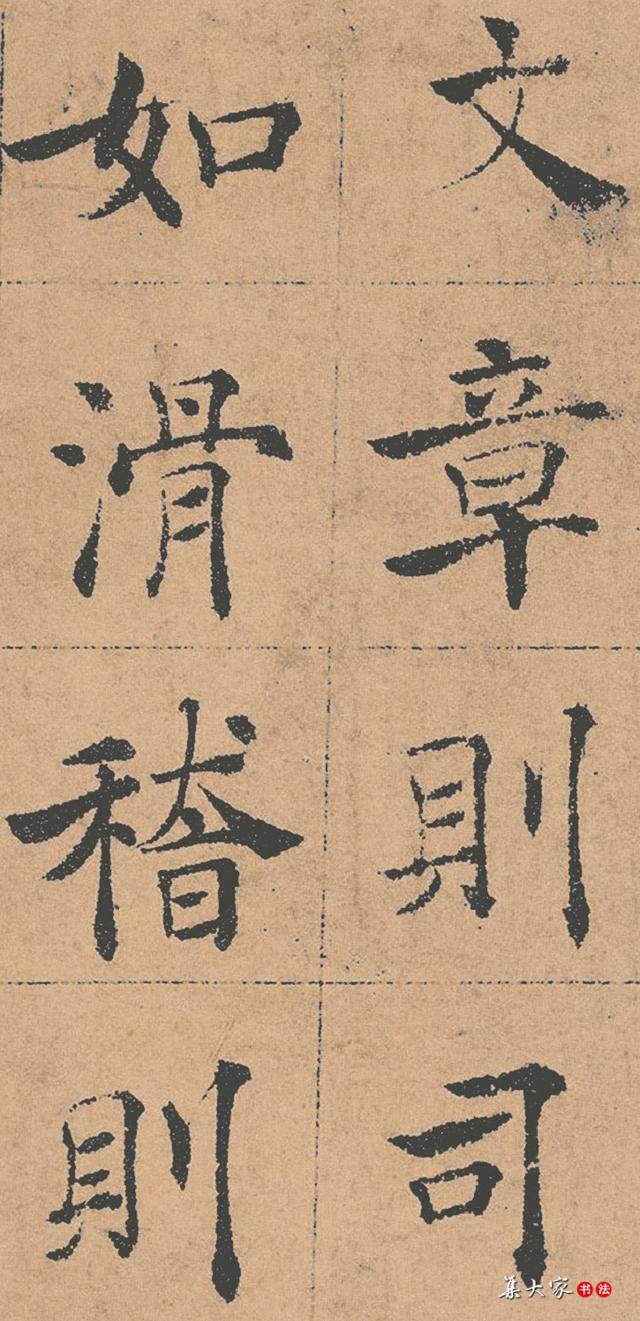 文章則司
如滑稽則
集大家书法